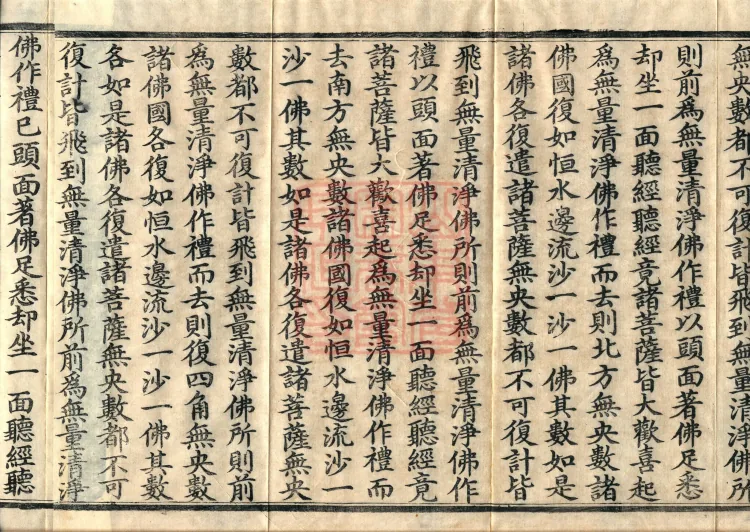 無央數都不可復計皆飛到無量清淨佛所
則前爲無量清淨佛作禮以頭面著佛足悉
却坐一面聽經聽經竟諸菩薩皆大歡喜起
爲無量清淨佛作禮而去則北方無央數諸
佛國復如恒水邊流沙一沙一佛其數如是
諸佛各復遣諸菩薩無央數都不可復計皆
飛到無量清淨佛所則前爲無量清淨佛作
禮以頭面著佛足悉却坐一面聽經聽經竟
諸菩薩皆大歡喜起爲無量清淨佛作禮而
去南方無央數諸佛國復如恒水邊流沙一
沙一佛其數如是諸佛各復遣諸菩薩無央
數都不可復計皆飛到無量清淨佛所則前
爲無量清淨佛作禮而去則復四角無央數
諸佛國各復如恒水邊流沙一沙一佛其數
各如是諸佛各復遣諸菩薩無央數都不可
復計皆飛到無量清淨佛所前爲無量清淨
佛作禮已頭面著佛足悉却坐一面聽經聽